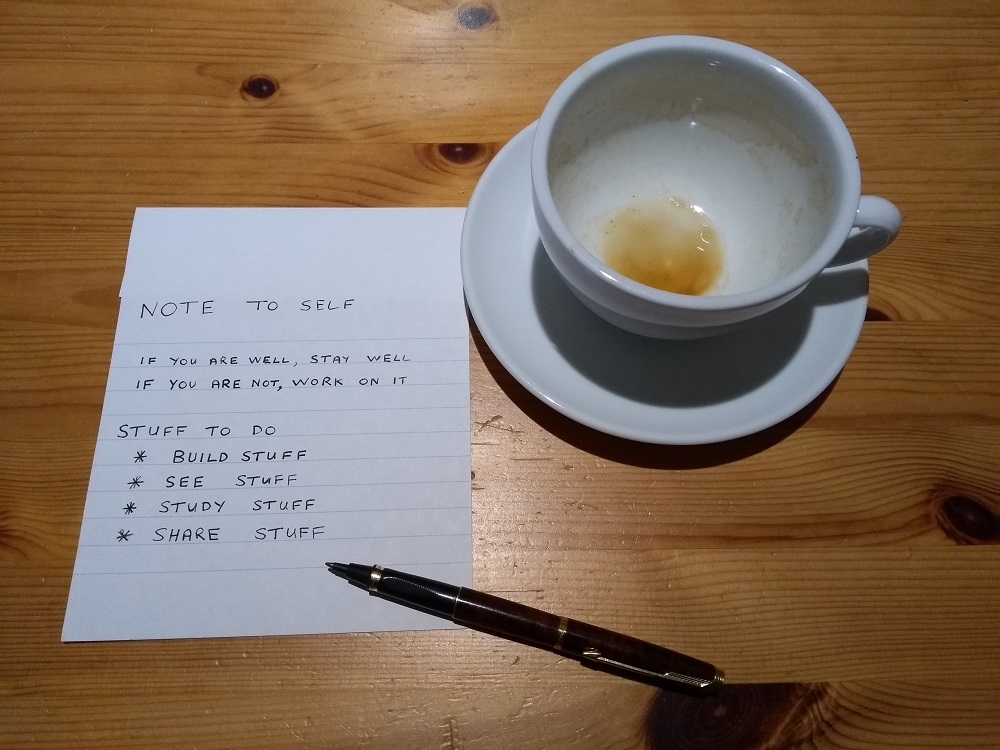 NOTE TO SELF
IF YOU ARE WELL, STAY WELL
IF YOU ARE NOT, WORK ON IT
STUFF TO DO
* BUILD STUFF
* SEE STUFF
* STUDY STUFF
* SHARE STUFF